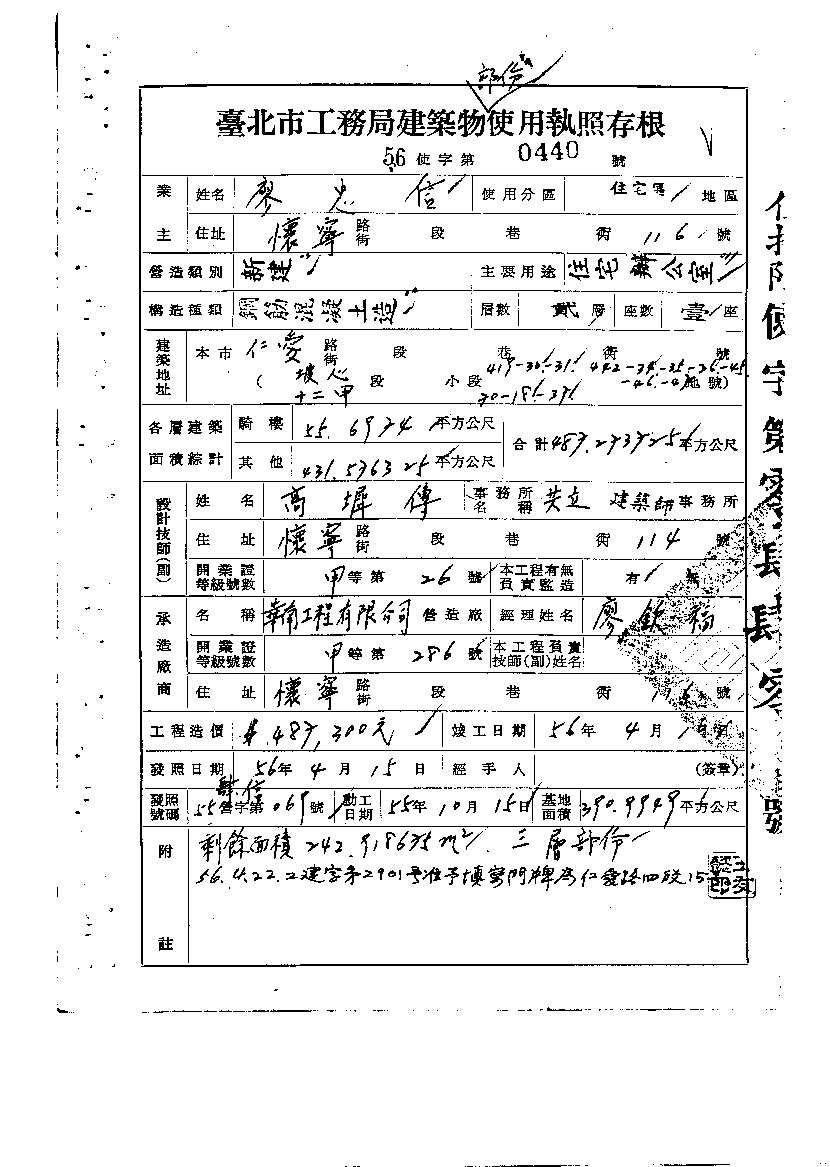 部份
臺北市工務局建築物使用執照存根
56 使字第 0440 號
業主 姓名 廖忠信 使用分區 住宅區 地區
住址 懷寧 路街 段 巷 衖 116 號
營造類別 新建 主要用途 住宅辦公室
構造種類 鋼筋混凝土造 層數 貳層 座數 壹座
建築地址 本市 仁愛 路街 段 巷 衖 號
( 坡心 段 十二甲 小段 地號)
各層建築面積綜計 騎樓 55.6974 平方公尺 合計 487.273725 平方公尺
其他 431.576325 平方公尺
設計技師(副) 姓名 高墀傳 事務所名稱 共立 建築師事務所
住址 懷寧 路街 段 巷 衖 114 號
開業證等級號數 甲等第 26 號 本工程有無負實監造 有 無
承造廠商 名稱 華南工程有限公司 營造廠 經理姓名 廖欽福
開業證等級號數 甲等第 286 號 本工程負實技師(副)姓名
住址 懷寧 路街 段 巷 衖 116 號
工程造價 $487,300元 竣工日期 56年 4月 日
發照日期 56年 4月 15日 經手人 (簽章)
發照號碼 55 營字第 069 號 動工日期 55年 10月 15日 基地面積 390.9949 平方公尺
附註 剩餘面積 242.918675 m² 三層部份
56.4.22.2建字第2901号准予填寫門牌為仁愛路四段15
使字第零肆肆零號